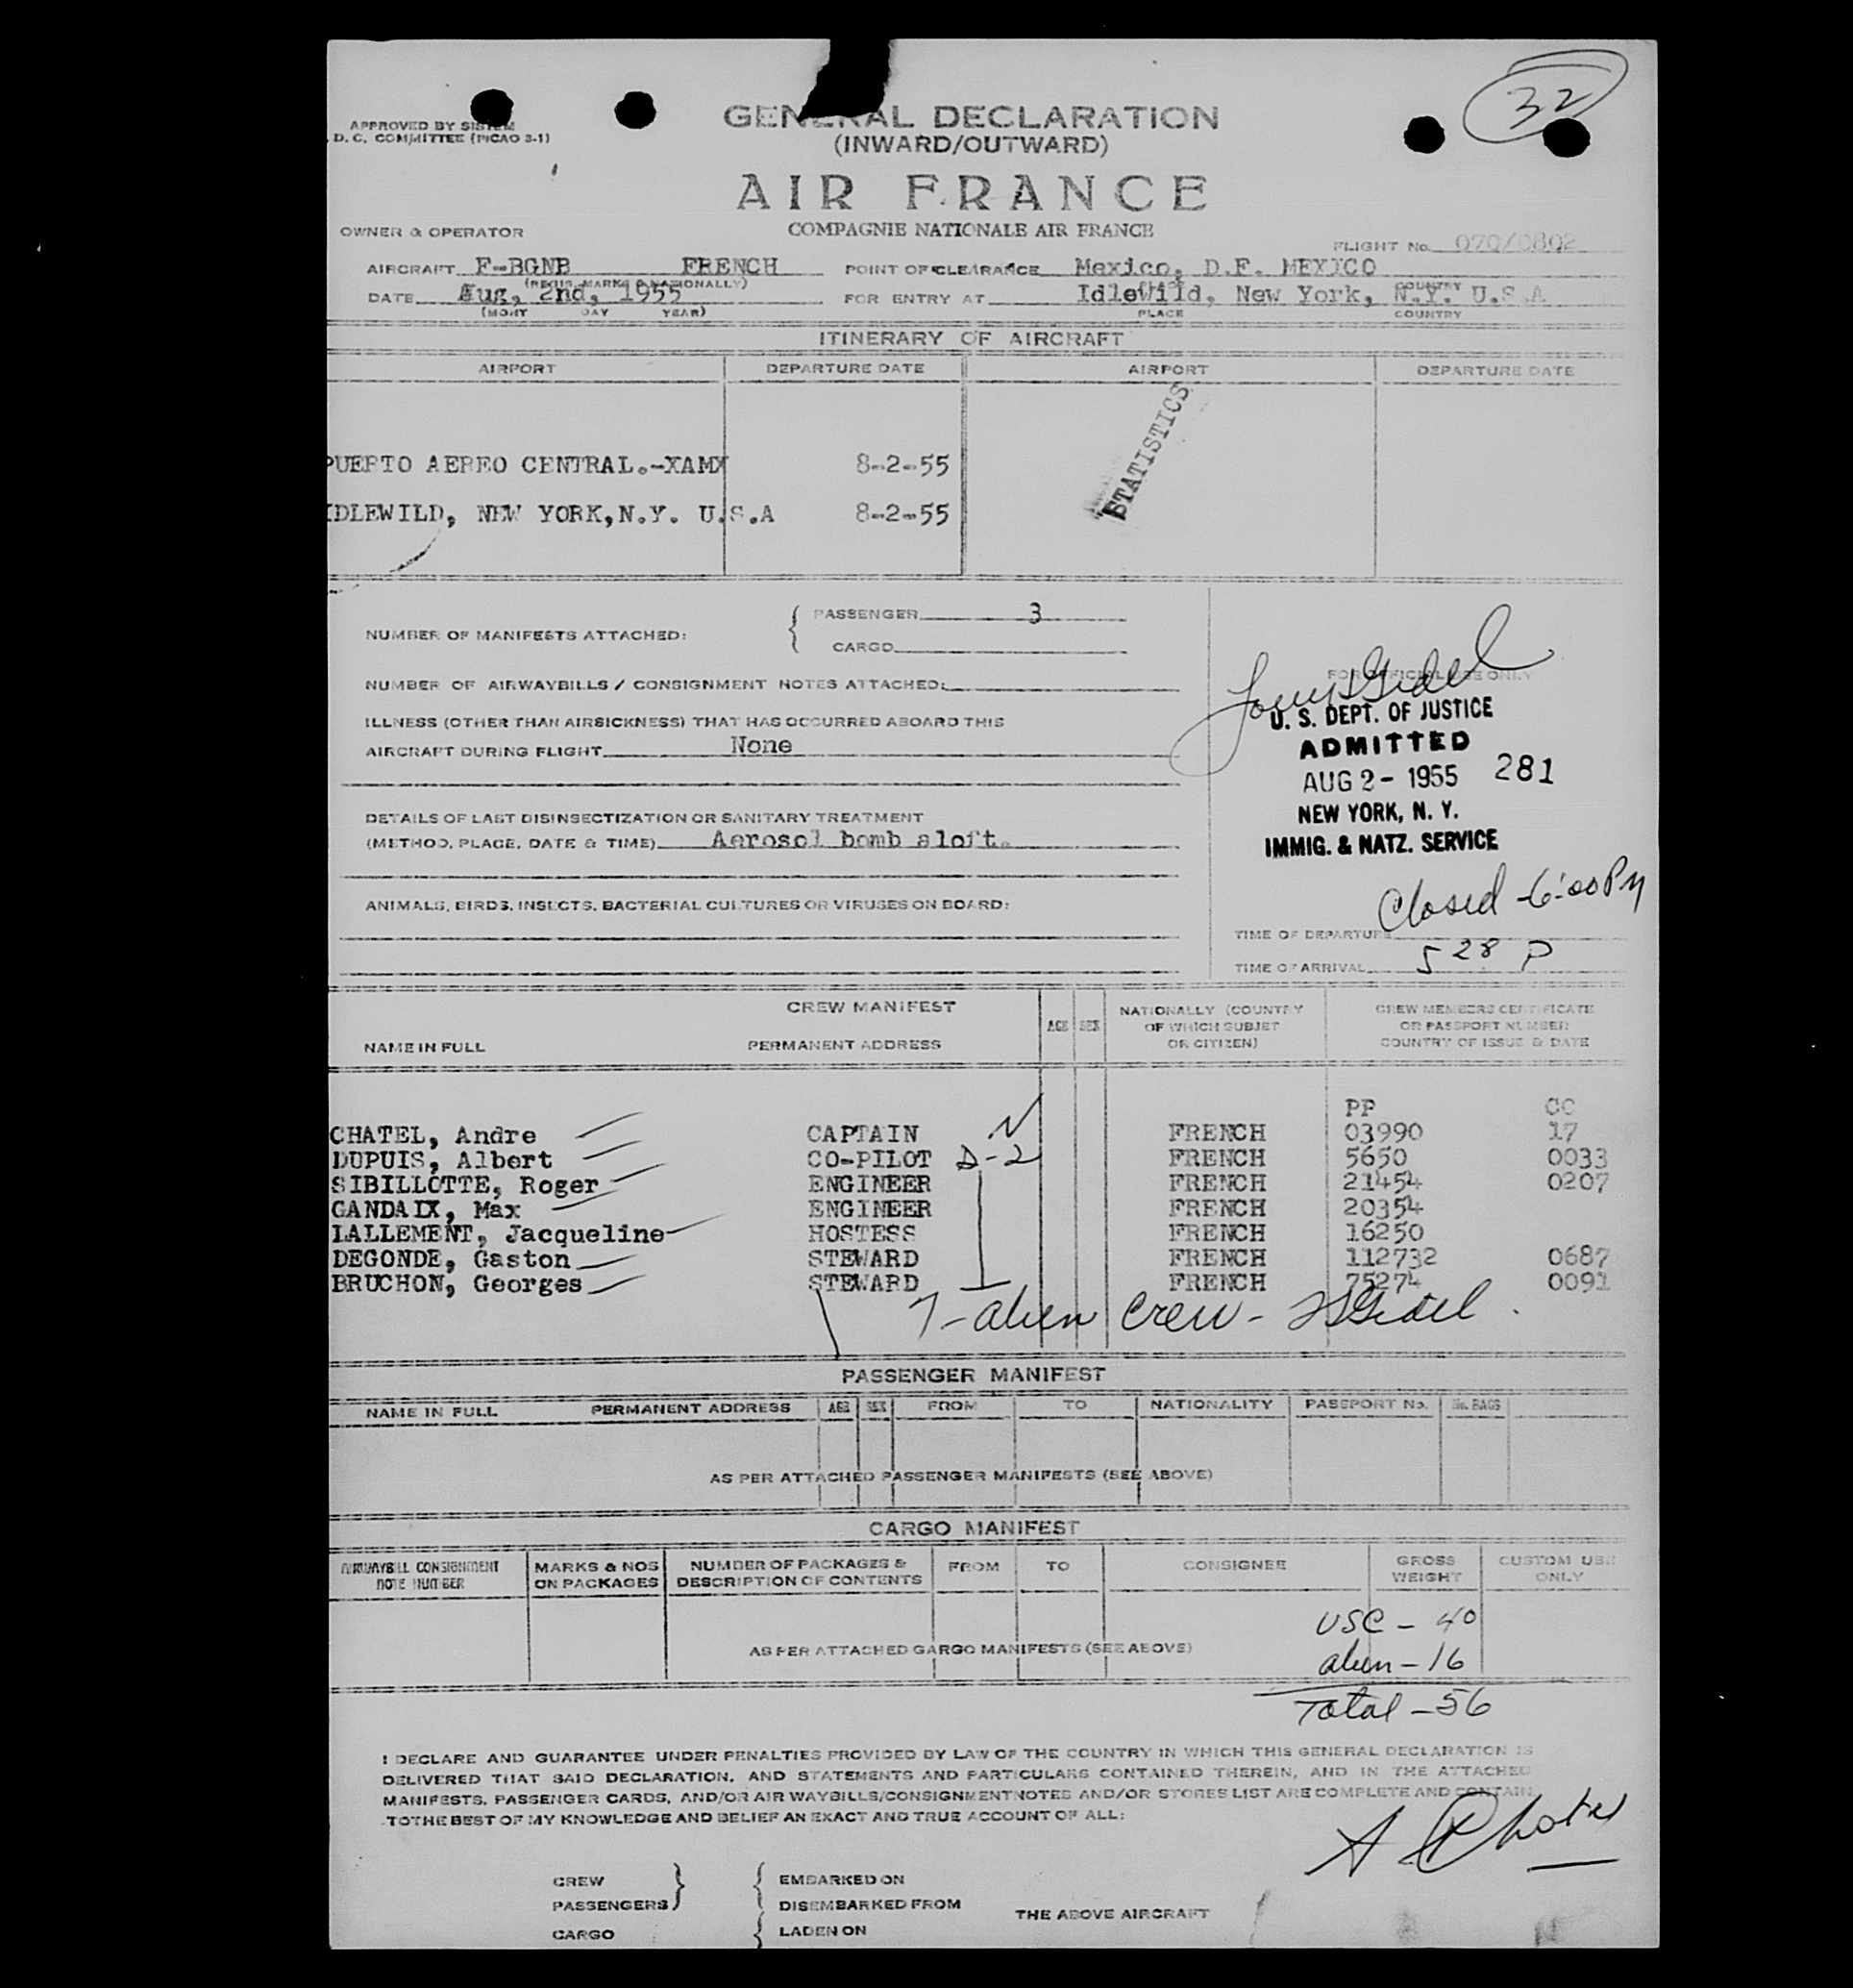 32
APPROVED BY
D. C. COMMITTEE (PICAO 3-1)
GENERAL DECLARATION
(INWARD/OUTWARD)
AIR FRANCE
COMPAGNIE NATIONALE AIR FRANCE
OWNER & OPERATOR
FLIGHT No. 070/0802
AIRCRAFT F-BGNB FRENCH POINT OF CLEARANCE Mexico, D.F. MEXICO
(REGIS. MARKS & NATIONALLY) COUNTRY
DATE Aug, 2nd, 1955 FOR ENTRY AT Idlewild, New York, N.Y. U.S.A
(MONT DAY YEAR) PLACE COUNTRY
ITINERARY OF AIRCRAFT
AIRPORT DEPARTURE DATE AIRPORT DEPARTURE DATE
STATISTICS
PUERTO AEREO CENTRAL.-XAMX 8-2-55
IDLEWILD, NEW YORK,N.Y. U.S.A 8-2-55
NUMBER OF MANIFESTS ATTACHED: PASSENGER 3
CARGO
NUMBER OF AIRWAYBILLS / CONSIGNMENT NOTES ATTACHED:
ILLNESS (OTHER THAN AIRSICKNESS) THAT HAS OCCURRED ABOARD THIS
AIRCRAFT DURING FLIGHT None
DETAILS OF LAST DISINSECTIZATION OR SANITARY TREATMENT
(METHOD, PLACE, DATE & TIME) Aerosol bomb aloft.
ANIMALS, BIRDS, INSECTS, BACTERIAL CULTURES OR VIRUSES ON BOARD:
FOR OFFICIAL USE ONLY
U. S. DEPT. OF JUSTICE
ADMITTED
AUG 2 - 1955 281
NEW YORK, N. Y.
IMMIG. & NATZ. SERVICE
Closed 6:00 PM
TIME OF DEPARTURE
TIME OF ARRIVAL 5 28 P
CREW MANIFEST
NAME IN FULL PERMANENT ADDRESS AGE SEX NATIONALLY (COUNTRY OF WHICH SUBJET OR CITIZEN) CREW MEMBERS CERTIFICATE OR PASSPORT NUMBER COUNTRY OF ISSUE & DATE
PP CC
CHATEL, Andre CAPTAIN FRENCH 03990 17
DUPUIS, Albert CO-PILOT D-2 FRENCH 5650 0033
SIBILLOTTE, Roger ENGINEER FRENCH 21454 0207
GANDAIX, Max ENGINEER FRENCH 20354
LALLEMENT, Jacqueline HOSTESS FRENCH 16250
DEGONDE, Gaston STEWARD FRENCH 112732 0687
BRUCHON, Georges STEWARD FRENCH 75274 0091
7-alien crew -
PASSENGER MANIFEST
NAME IN FULL PERMANENT ADDRESS AGE SEX FROM TO NATIONALITY PASSPORT No. No. BAGS
AS PER ATTACHED PASSENGER MANIFESTS (SEE ABOVE)
CARGO MANIFEST
AIRWAYBILL CONSIGNMENT NOTE NUMBER MARKS & NOS ON PACKAGES NUMBER OF PACKAGES & DESCRIPTION OF CONTENTS FROM TO CONSIGNEE GROSS WEIGHT CUSTOM USE ONLY
USC - 40
AS PER ATTACHED CARGO MANIFESTS (SEE ABOVE)
alien - 16
Total - 56
I DECLARE AND GUARANTEE UNDER PENALTIES PROVIDED BY LAW OF THE COUNTRY IN WHICH THIS GENERAL DECLARATION IS
DELIVERED THAT SAID DECLARATION, AND STATEMENTS AND PARTICULARS CONTAINED THEREIN, AND IN THE ATTACHED
MANIFESTS, PASSENGER CARDS, AND/OR AIR WAYBILLS/CONSIGNMENTNOTES AND/OR STORES LIST ARE COMPLETE AND CONTAIN
TO THE BEST OF MY KNOWLEDGE AND BELIEF AN EXACT AND TRUE ACCOUNT OF ALL:
A Chatel
CREW EMBARKED ON
PASSENGERS DISEMBARKED FROM THE ABOVE AIRCRAFT
CARGO LADEN ON